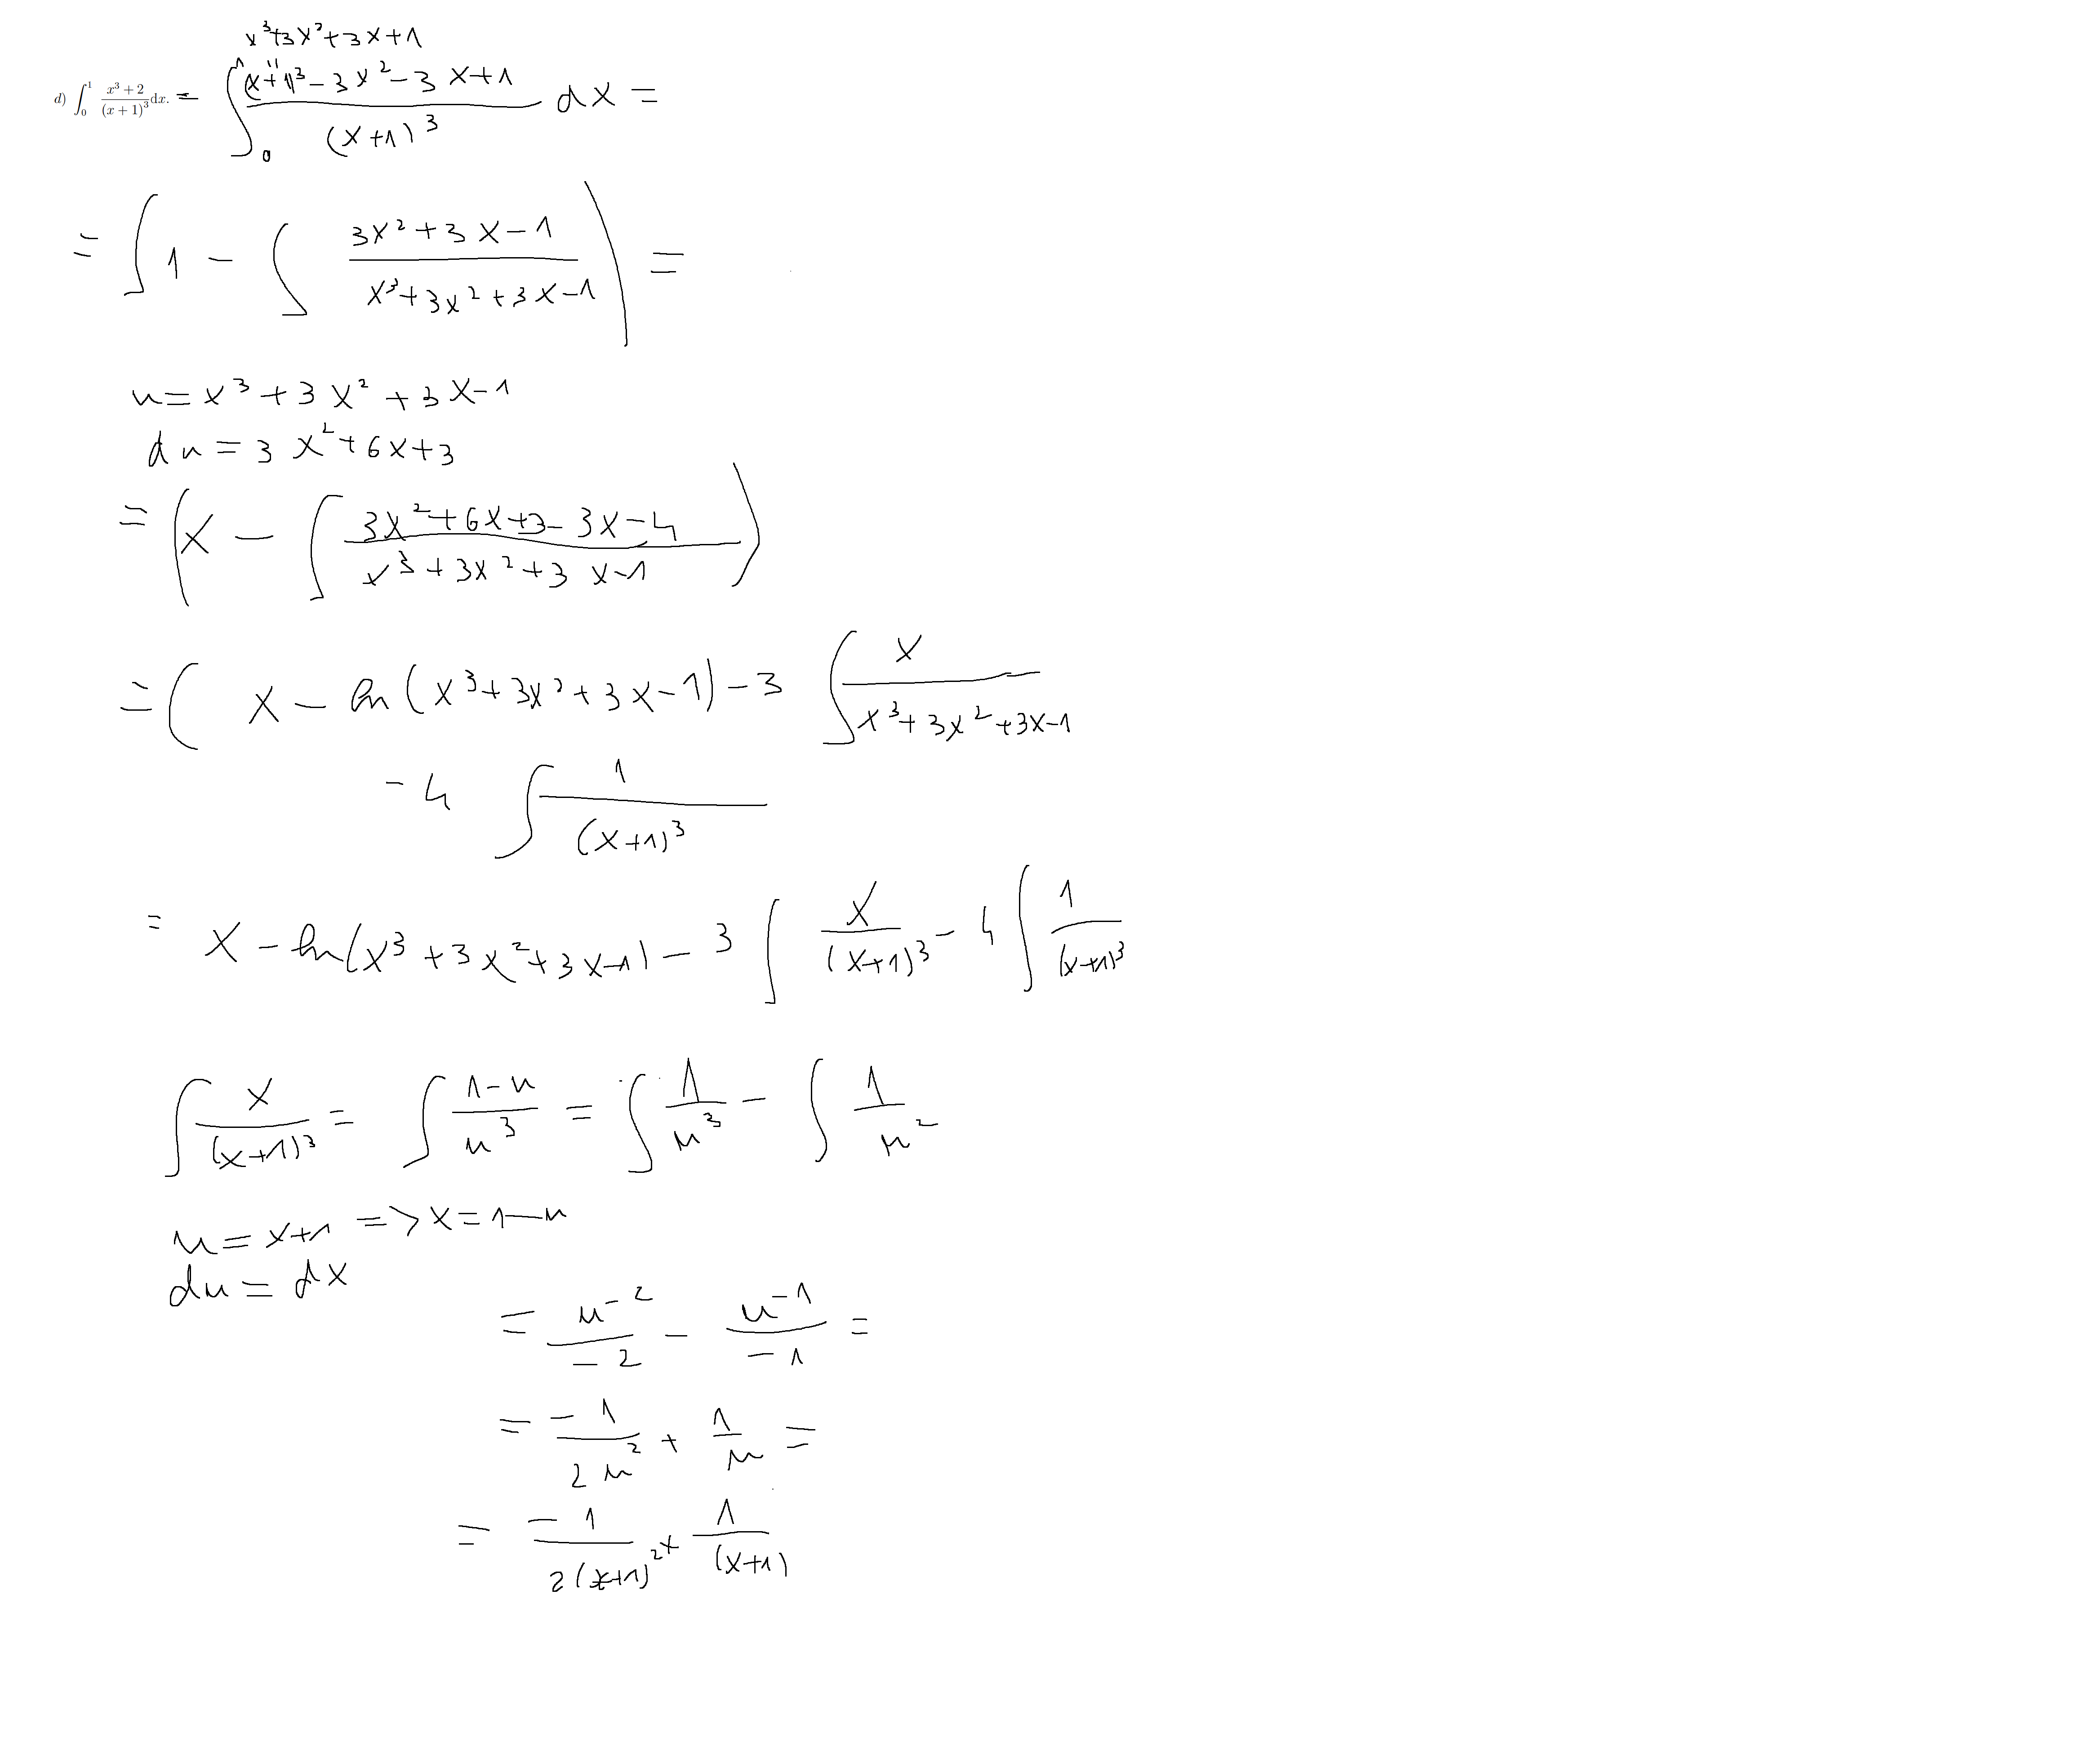 x³+3x²+3x+1
d) ∫₀¹ (x³+2)/(x+1)³ dx. = ∫₀¹ ((x+1)³-3x²-3x+1)/(x+1)³ dx =
= ∫1 - ∫ (3x²+3x-1)/(x³+3x²+3x-1) | =
u = x³+3x²+3x-1
du = 3x²+6x+3
= (x - ∫ (3x²+6x+3-3x-4)/(x³+3x²+3x-1))
= ( x - ln(x³+3x²+3x-1) - 3 ∫ x/(x³+3x²+3x-1)
- 4 ∫ 1/(x+1)³
= x - ln(x³+3x²+3x-1) - 3 ∫ x/(x+1)³ - 4 ∫ 1/(x+1)³
∫ x/(x+1)³ = ∫ (1-u)/u³ = ∫ 1/u³ - ∫ 1/u²
u = x+1 => x = 1-u
du = dx
= u⁻²/-2 - u⁻¹/-1 =
= -1/2u² + 1/u =
= -1/2(x+1)² + 1/(x+1)